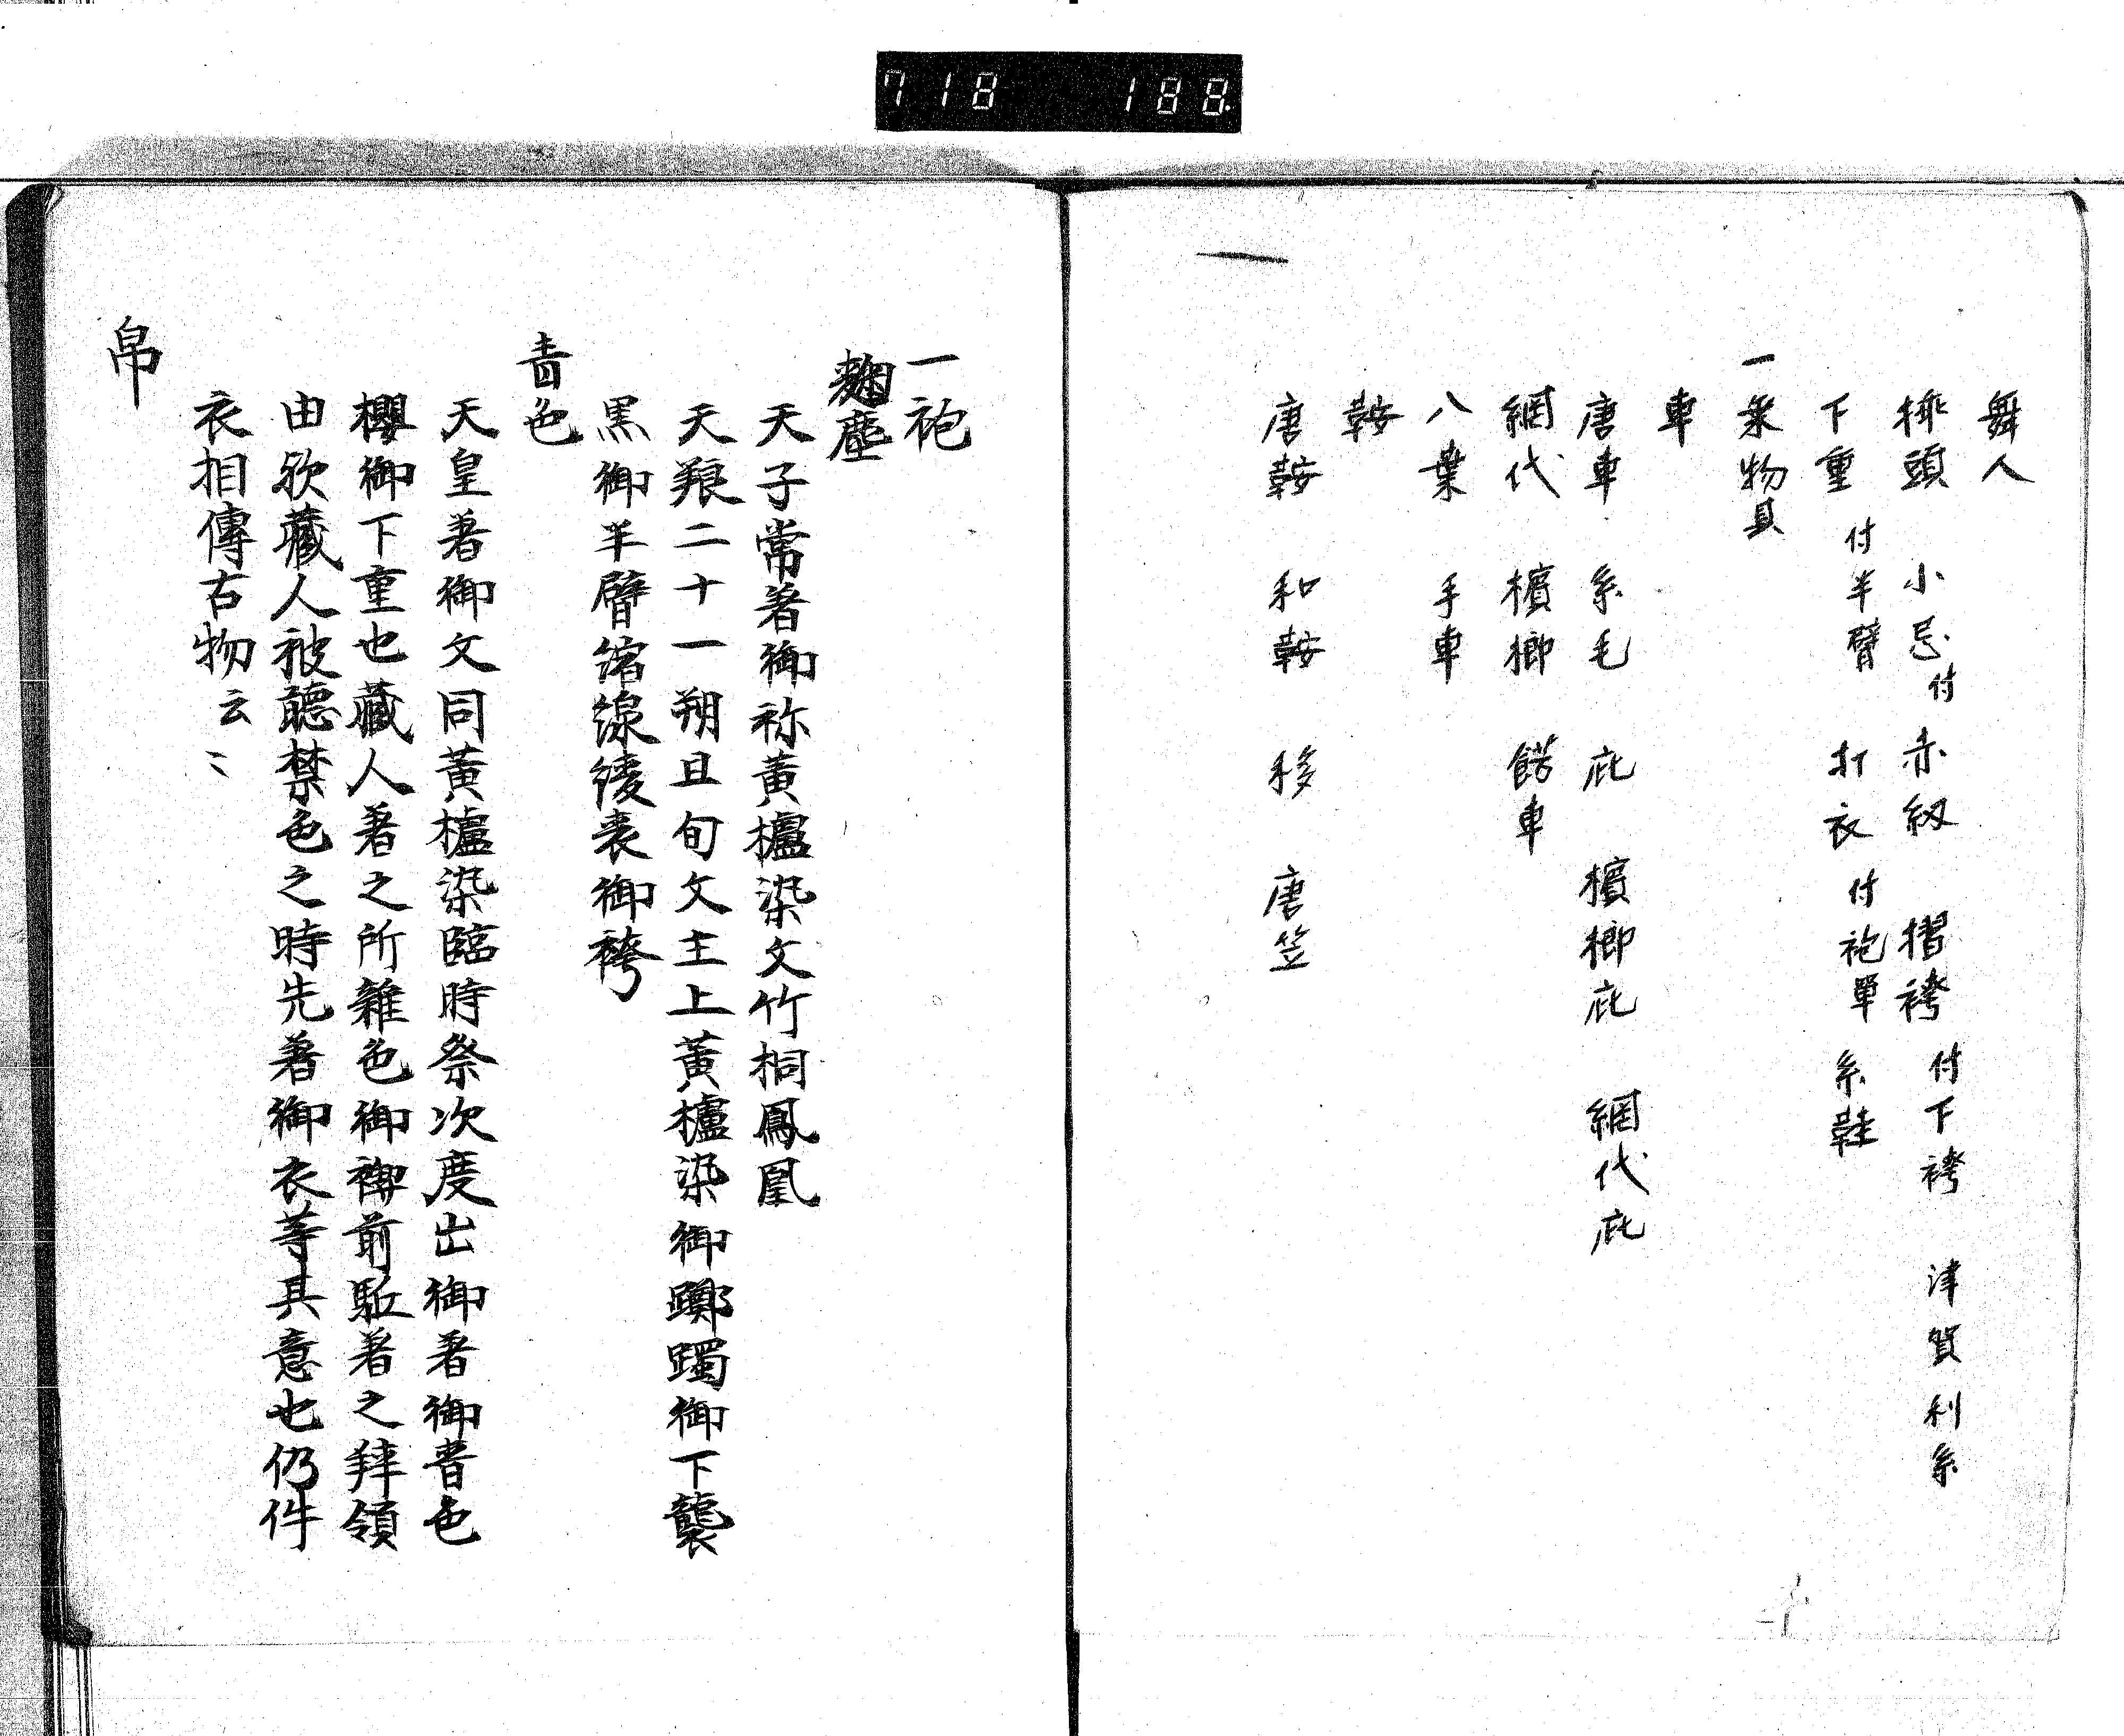 718 188
舞人
挿頭 小忌付 赤紐 摺袴 付下袴 津賀利糸
下重 付半臂 打衣 付袍單 糸鞋
一乗物具
車
唐車 糸毛 庇 檳榔庇 網代庇
網代 檳榔 餝車
八葉 手車
鞍
唐鞍 和鞍 移 唐笠
一袍
麹塵
天子常著御祢黄櫨染文竹桐鳳凰
天永二十一朔旦旬文主上黄櫨染御躑躅御下襲
黒御半臂縮線綾表御袴
青色
天皇著御文同黄櫨染臨時祭次度出御著御青色
櫻御下重也藏人著之所雜色御禊前駈著之拝領
由欤藏人被聴禁色之時先著御衣等其意也仍件
衣相傳古物云〻
帛